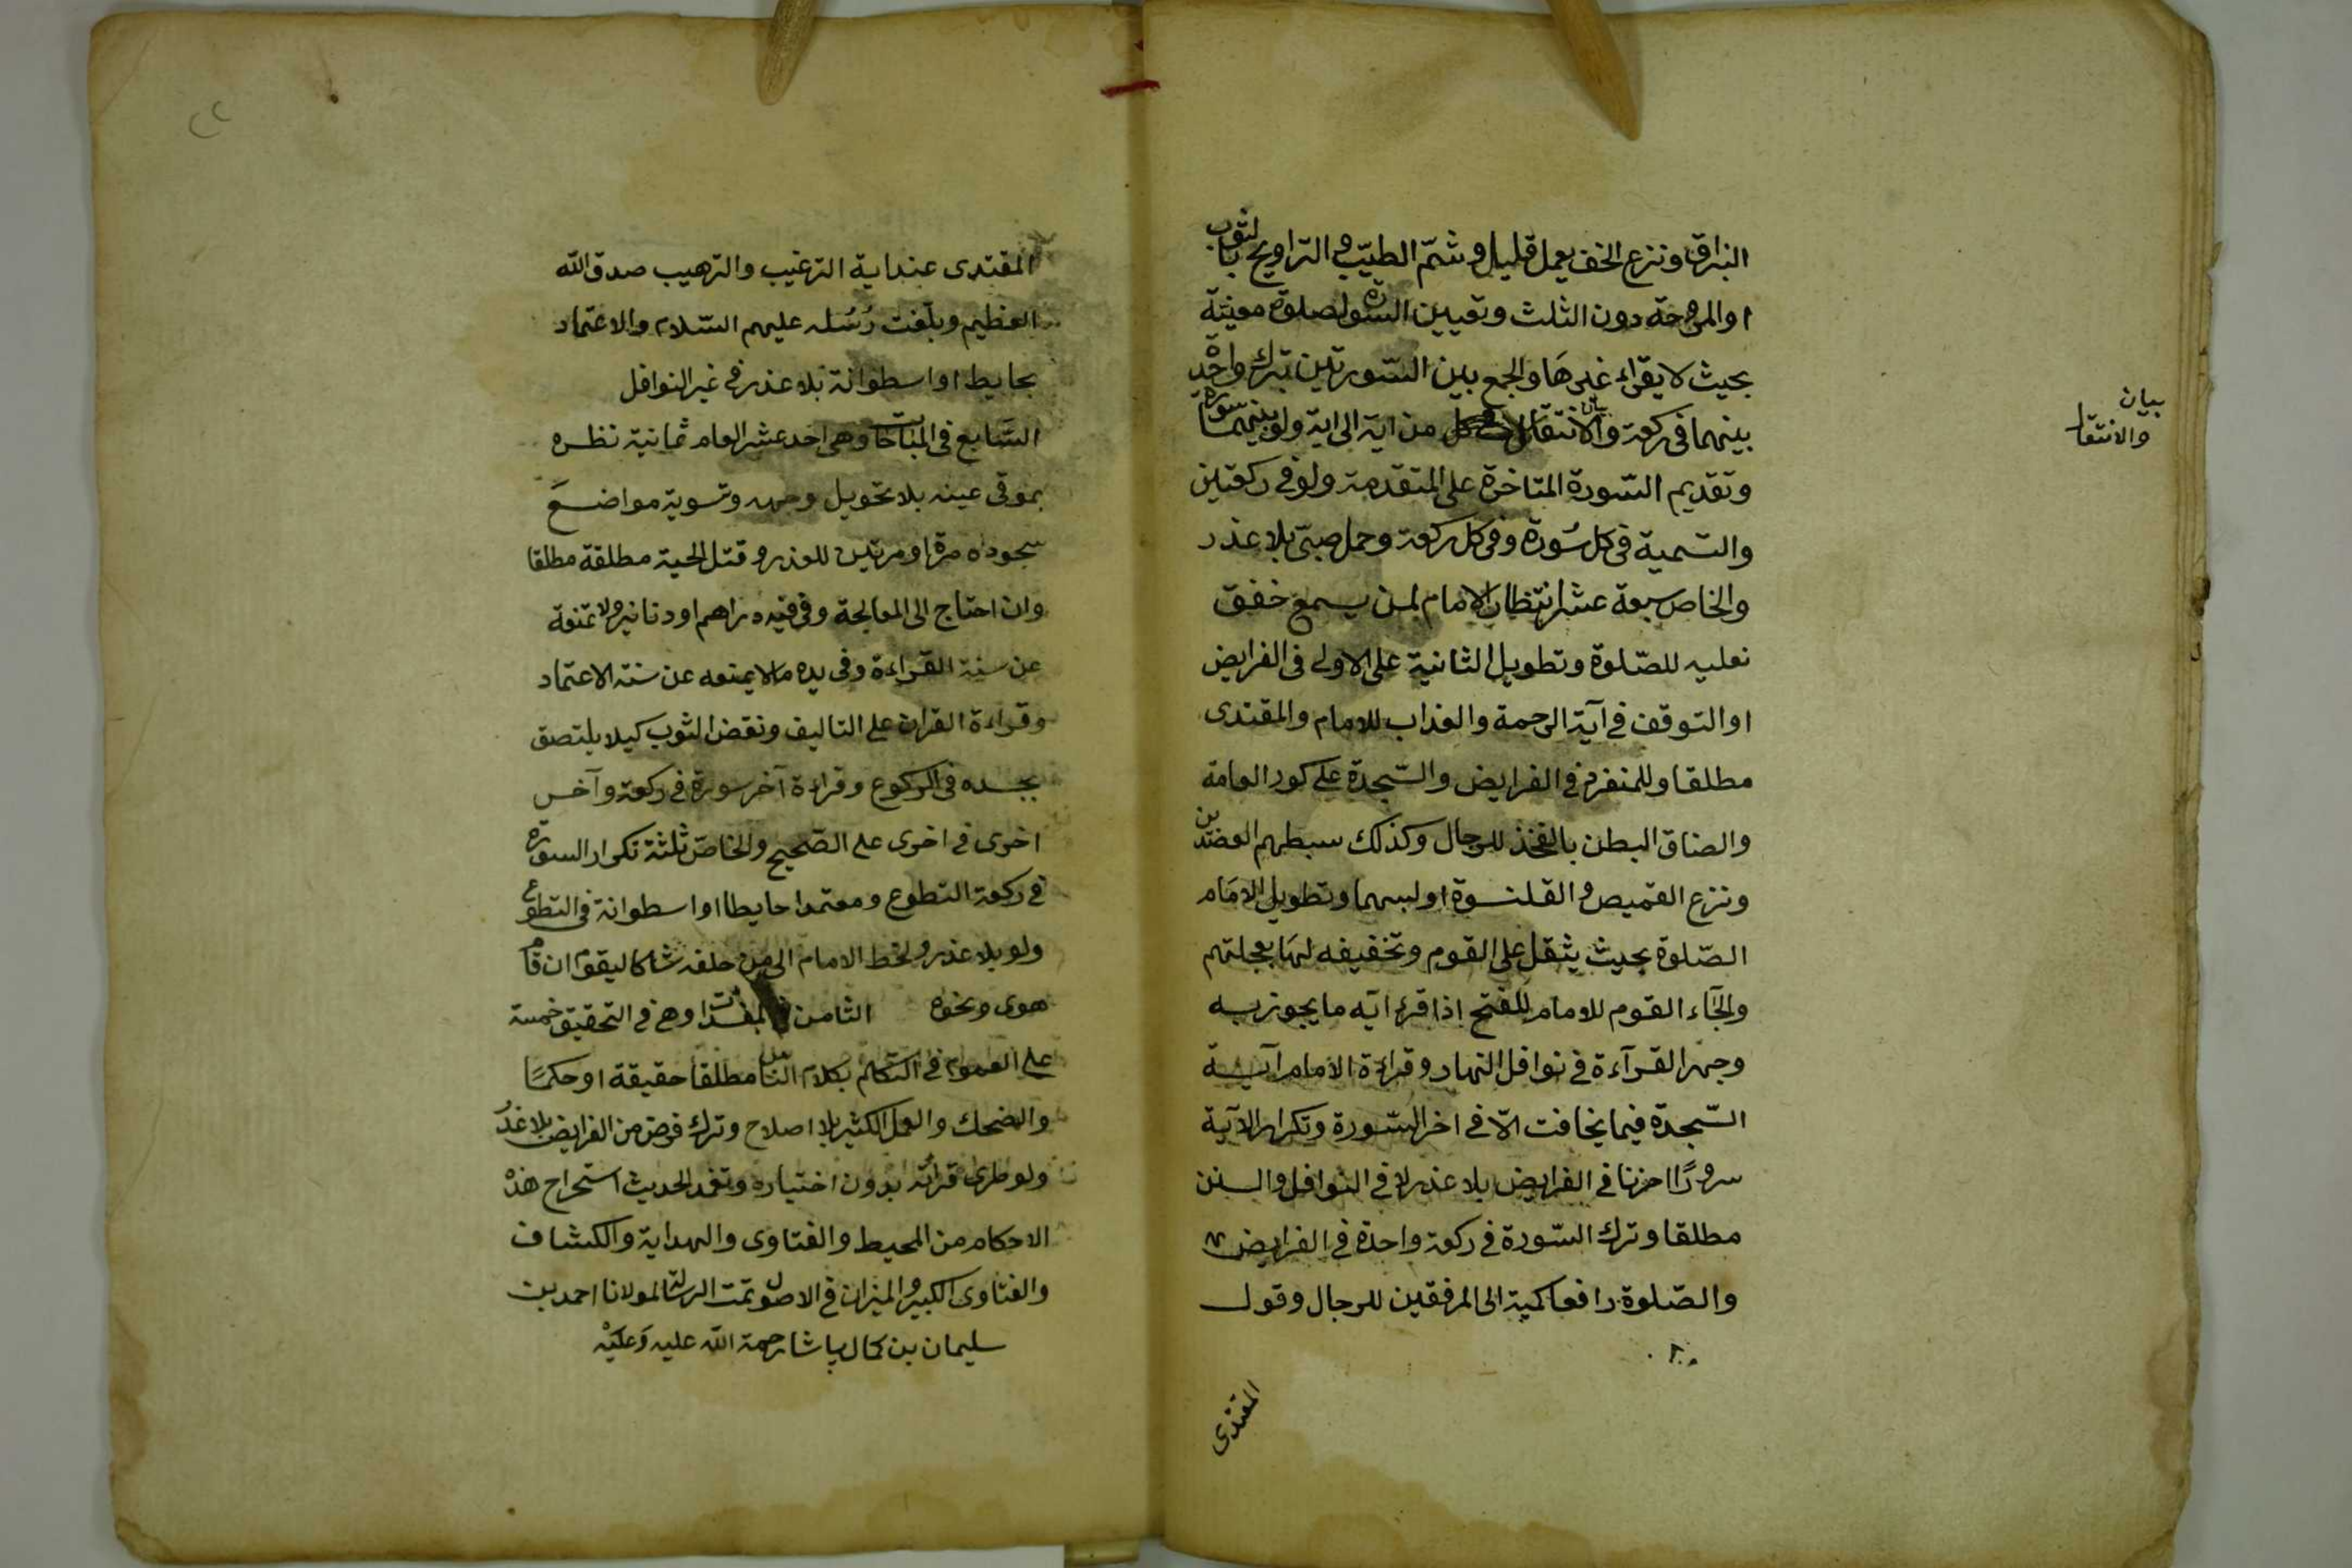 البزاق ونزع الخف بعمل قليل وشمّ الطيّب والتراويح بالثوب
او المروحة دون الثلث وتعيين السّورة لصلوة معينة
بحيث لا يقراء غيرها والجمع بين السّورتين بترك واحدة
بينهما فى ركعة والانتقال من اية الى اية ولو بينهما سورة
بيان
والانتقال
وتقديم السّورة المتاخرة على المتقدمة ولو فى ركعتين
والتسمية فى كل سُورة وفى كل ركعة وحمل صبىّ بلا عذر
والخاص سبعة عشر انتظار الامام لمن يسمع خفق
نعليه للصّلوة وتطويل الثانية على الاولى فى الفرايض
او التوقف فى آية الرحمة والعذاب للامام والمقتدى
مطلقا وللمنفرد فى الفرايض والسّجدة على كور العامة
والصاق البطن بالفخذ للرجال وكذلك سبطهم العضدين
ونزع القميص والقلنسوة او لبسهما وتطويل الامام
الصّلوة بحيث يثقل على القوم وتخفيفه لها بعجلتهم
والجآء القوم للامام للفتح اذا قرء آيه ما يجوز به
وجهر القرآءة فى نوافل النهار وقراءة الامام آية
السّجدة فيما يخافت الّا فى اخر السّورة وتكرار الآية
سرورًا او حزنا فى الفرايض بلا عذر لا فى النوافل والسنن
مطلقا وترك السّورة فى ركعة واحدة فى الفرايض
والصّلوة رافعا كميه الى المرفقين للرجال وقول
المقتدى
المقتدى عند اية الترغيب والترهيب صدق الله
العظيم وبلّغت رُسُله عليهم السّلام والاعتماد
بحايط او اسطوانة بلا عذر فى غير النوافل
السّابع فى المباحات وهى احد عشر العام ثمانية نظره
بموقى عينه بلا تحويل وجهه وتسوية مواضع
سجوده مرة او مرتين للعذر وقتل الحية مطلقة مطلقا
وان احتاج الى المعالجة وفى فيه دراهم او دنانير ولا تمنعه
عن سنة القراءة وفى يده ما لا يمنعه عن سنة الاعتماد
وقراءة القران على التاليف ونفض الثوب كيلا يلتصق
بجسده فى الركوع وقراءة آخر سورة فى ركعة وآخر
اخرى فى اخرى على الصّحيح والخاصّ ثلثة تكرار السورة
فى ركعة التطوع ومعتمدا حايطا او اسطوانة فى التطوع
ولو بلا عذر ولحظ الامام الى من خلفه شاكا ليقوم ان قام
هوى ونحوه الثامن فى المفسدات وهى فى التحقيق خمسة
على العموم فى التكلم بكلام الناس مطلقا حقيقة او حكمًا
والضحك والعمل الكثير بلا اصلاح وترك فرض من الفرايض بلا عذر
ولو طرى قرأته بدون اختياره وتعمد الحديث استخراج هذه
الاحكام من المحيط والفتاوى والهداية والكشاف
والفتاوى الكبير والميزان فى الاصول تمت الرسالة لمولانا احمد بن
سليمان بن كمال پاشا رحمة الله عليه وَعليْه